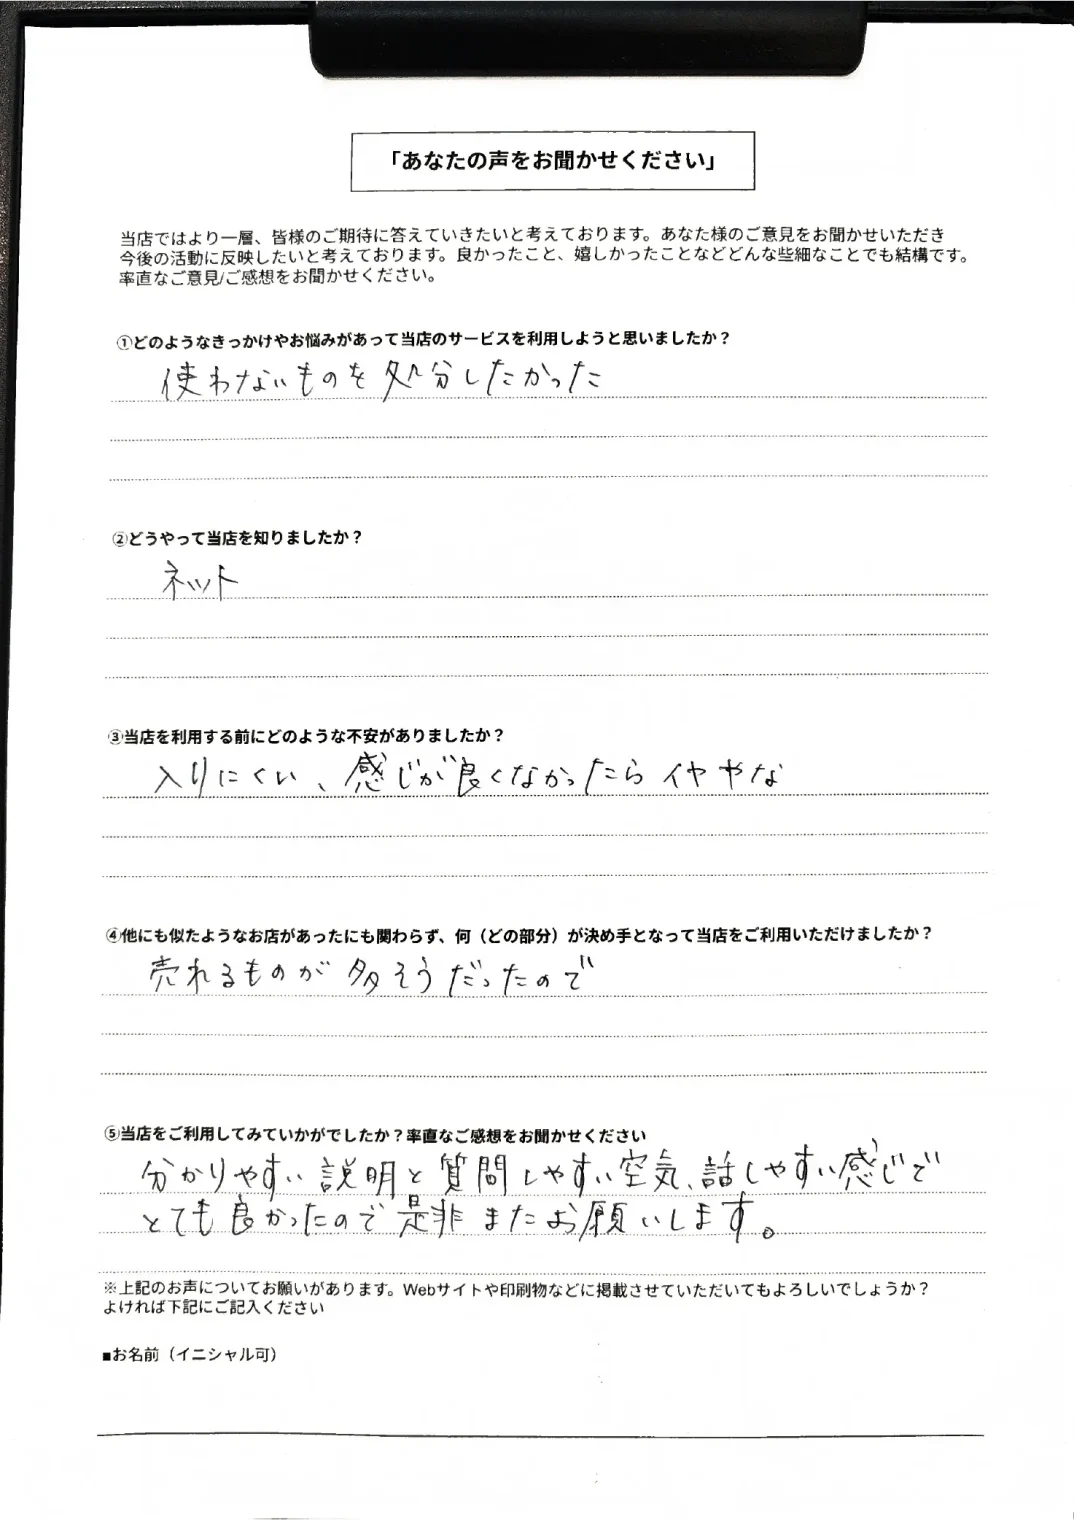 「あなたの声をお聞かせください」
当店ではより一層、皆様のご期待に答えていきたいと考えております。あなた様のご意見をお聞かせいただき
今後の活動に反映したいと考えております。良かったこと、嬉しかったことなどどんな些細なことでも結構です。
率直なご意見/ご感想をお聞かせください。
①どのようなきっかけやお悩みがあって当店のサービスを利用しようと思いましたか?
使わないものを処分したかった
②どうやって当店を知りましたか?
ネット
③当店を利用する前にどのような不安がありましたか?
入りにくい、感じが良くなかったらイヤやな
④他にも似たようなお店があったにも関わらず、何(どの部分)が決め手となって当店をご利用いただけましたか?
売れるものが多そうだったので
⑤当店をご利用してみていかがでしたか?率直なご感想をお聞かせください
分かりやすい説明と質問しやすい空気、話しやすい感じで
とても良かったので是非またお願いします。
※上記のお声についてお願いがあります。Webサイトや印刷物などに掲載させていただいてもよろしいでしょうか?
よければ下記にご記入ください
■お名前(イニシャル可)